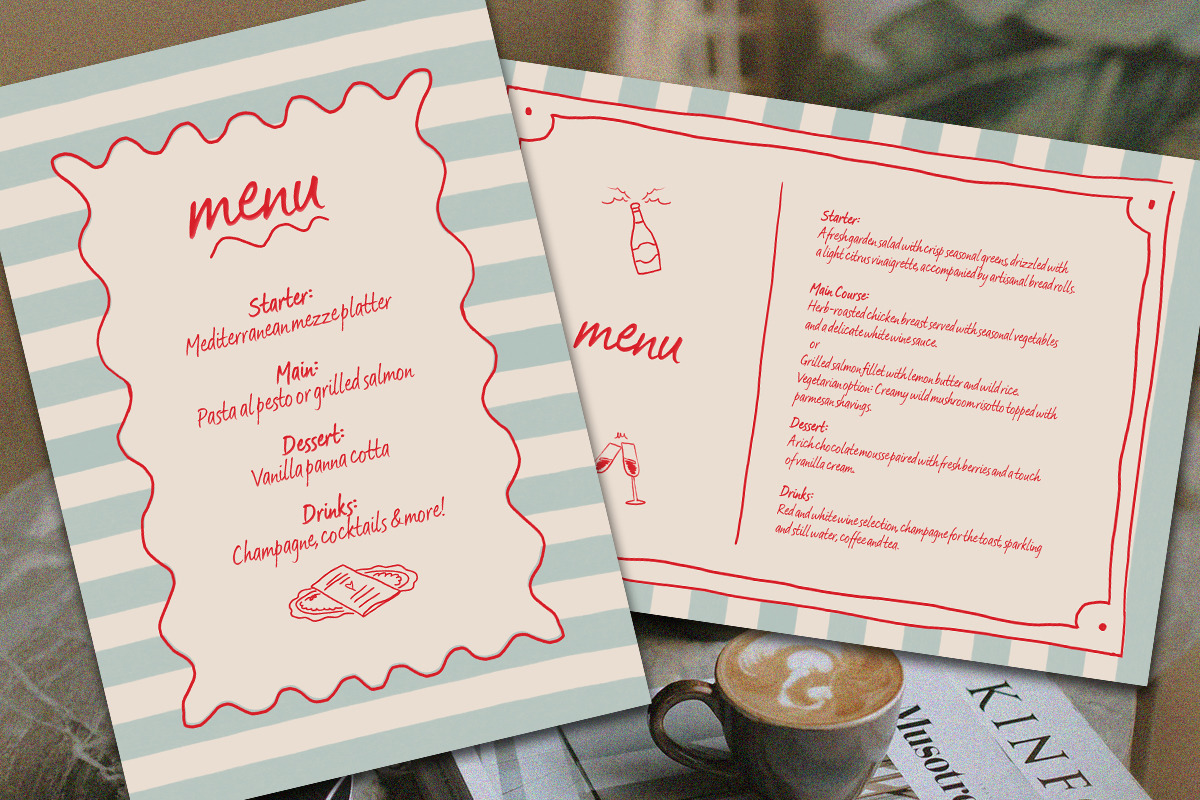 menu
Starter:
Mediterranean mezze platter
Main:
Pasta al pesto or grilled salmon
Dessert:
Vanilla panna cotta
Drinks:
Champagne, cocktails & more!
menu
Starter:
A fresh garden salad with crisp seasonal greens, drizzled with
a light citrus vinaigrette, accompanied by artisanal bread rolls.
Main Course:
Herb-roasted chicken breast served with seasonal vegetables
and a delicate white wine sauce.
or
Grilled salmon fillet with lemon butter and wild rice.
Vegetarian option: Creamy wild mushroom risotto topped with
parmesan shavings.
Dessert:
A rich chocolate mousse paired with fresh berries and a touch
of vanilla cream.
Drinks:
Red and white wine selection, champagne for the toast, sparkling
and still water, coffee and tea.
KINF
Musotr